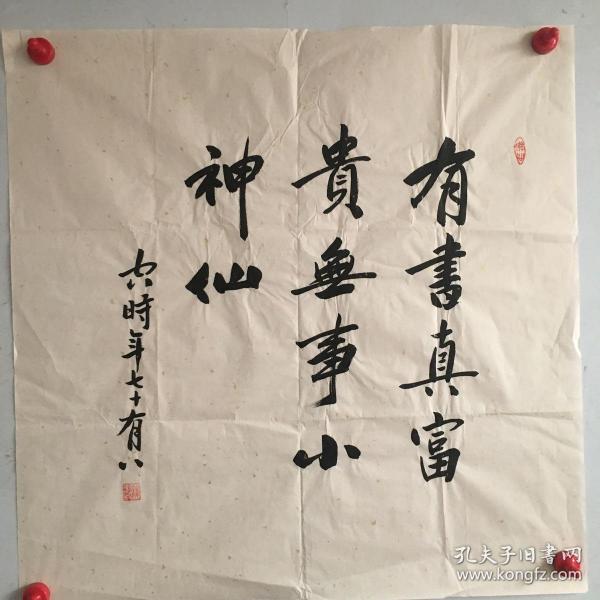 有書真富
貴無事小
神仙
時年七十有八
孔夫子旧書网
www.kongfz.com